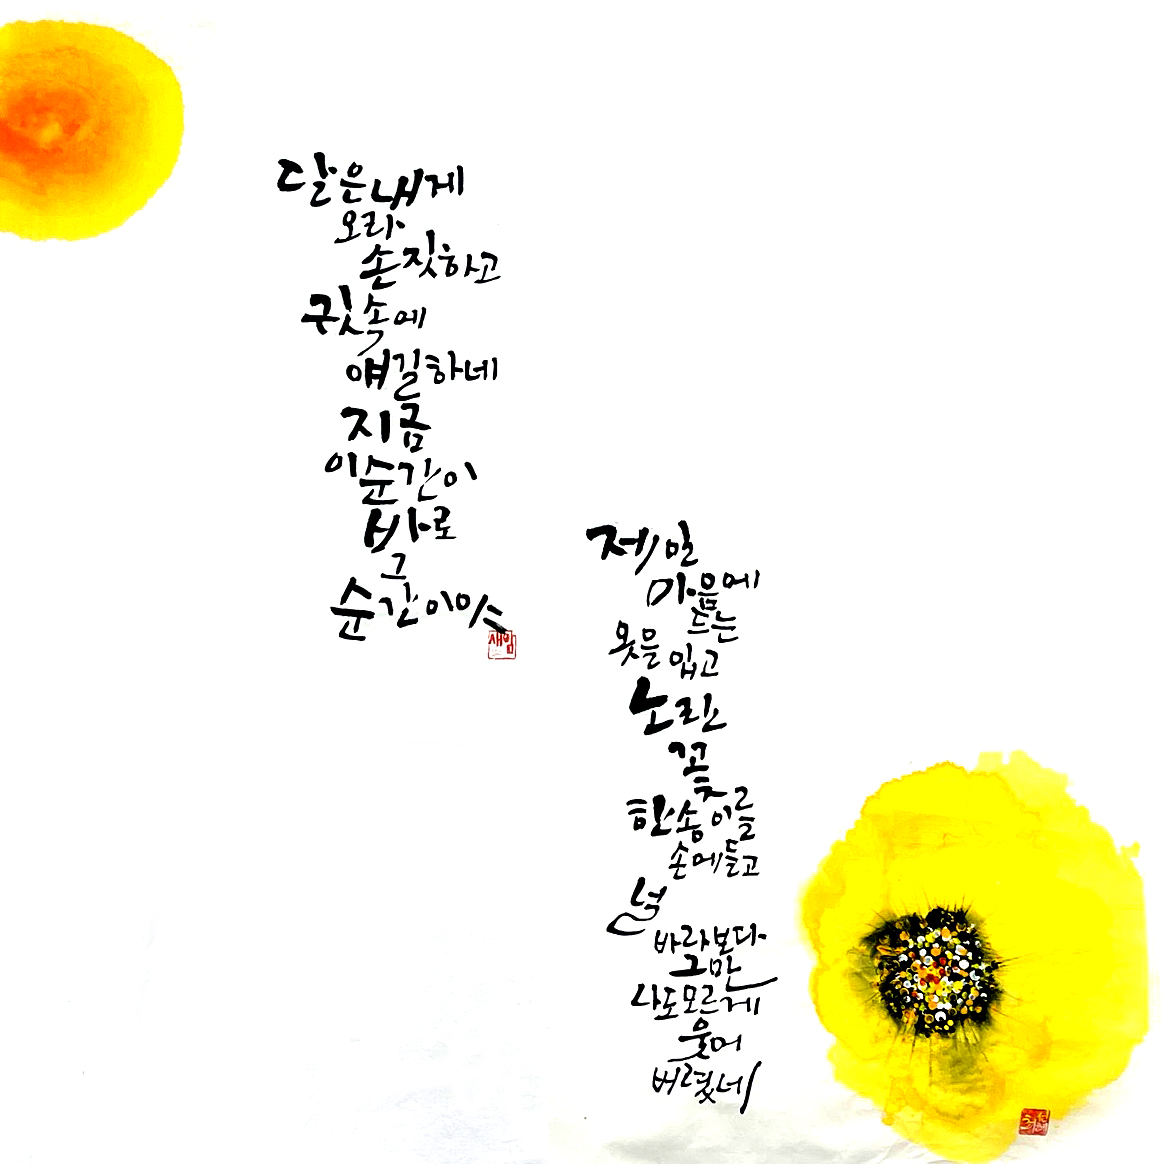 달은 내게
오라
손짓하고
귓속에
얘길하네
지금
이 순간이
바로
그
순간이야
새임
제일
마음에
드는
옷을 입고
노란
꽃
한송이를
손에 들고
널
바라보다
그만
나도 모르게
웃어
버렸네